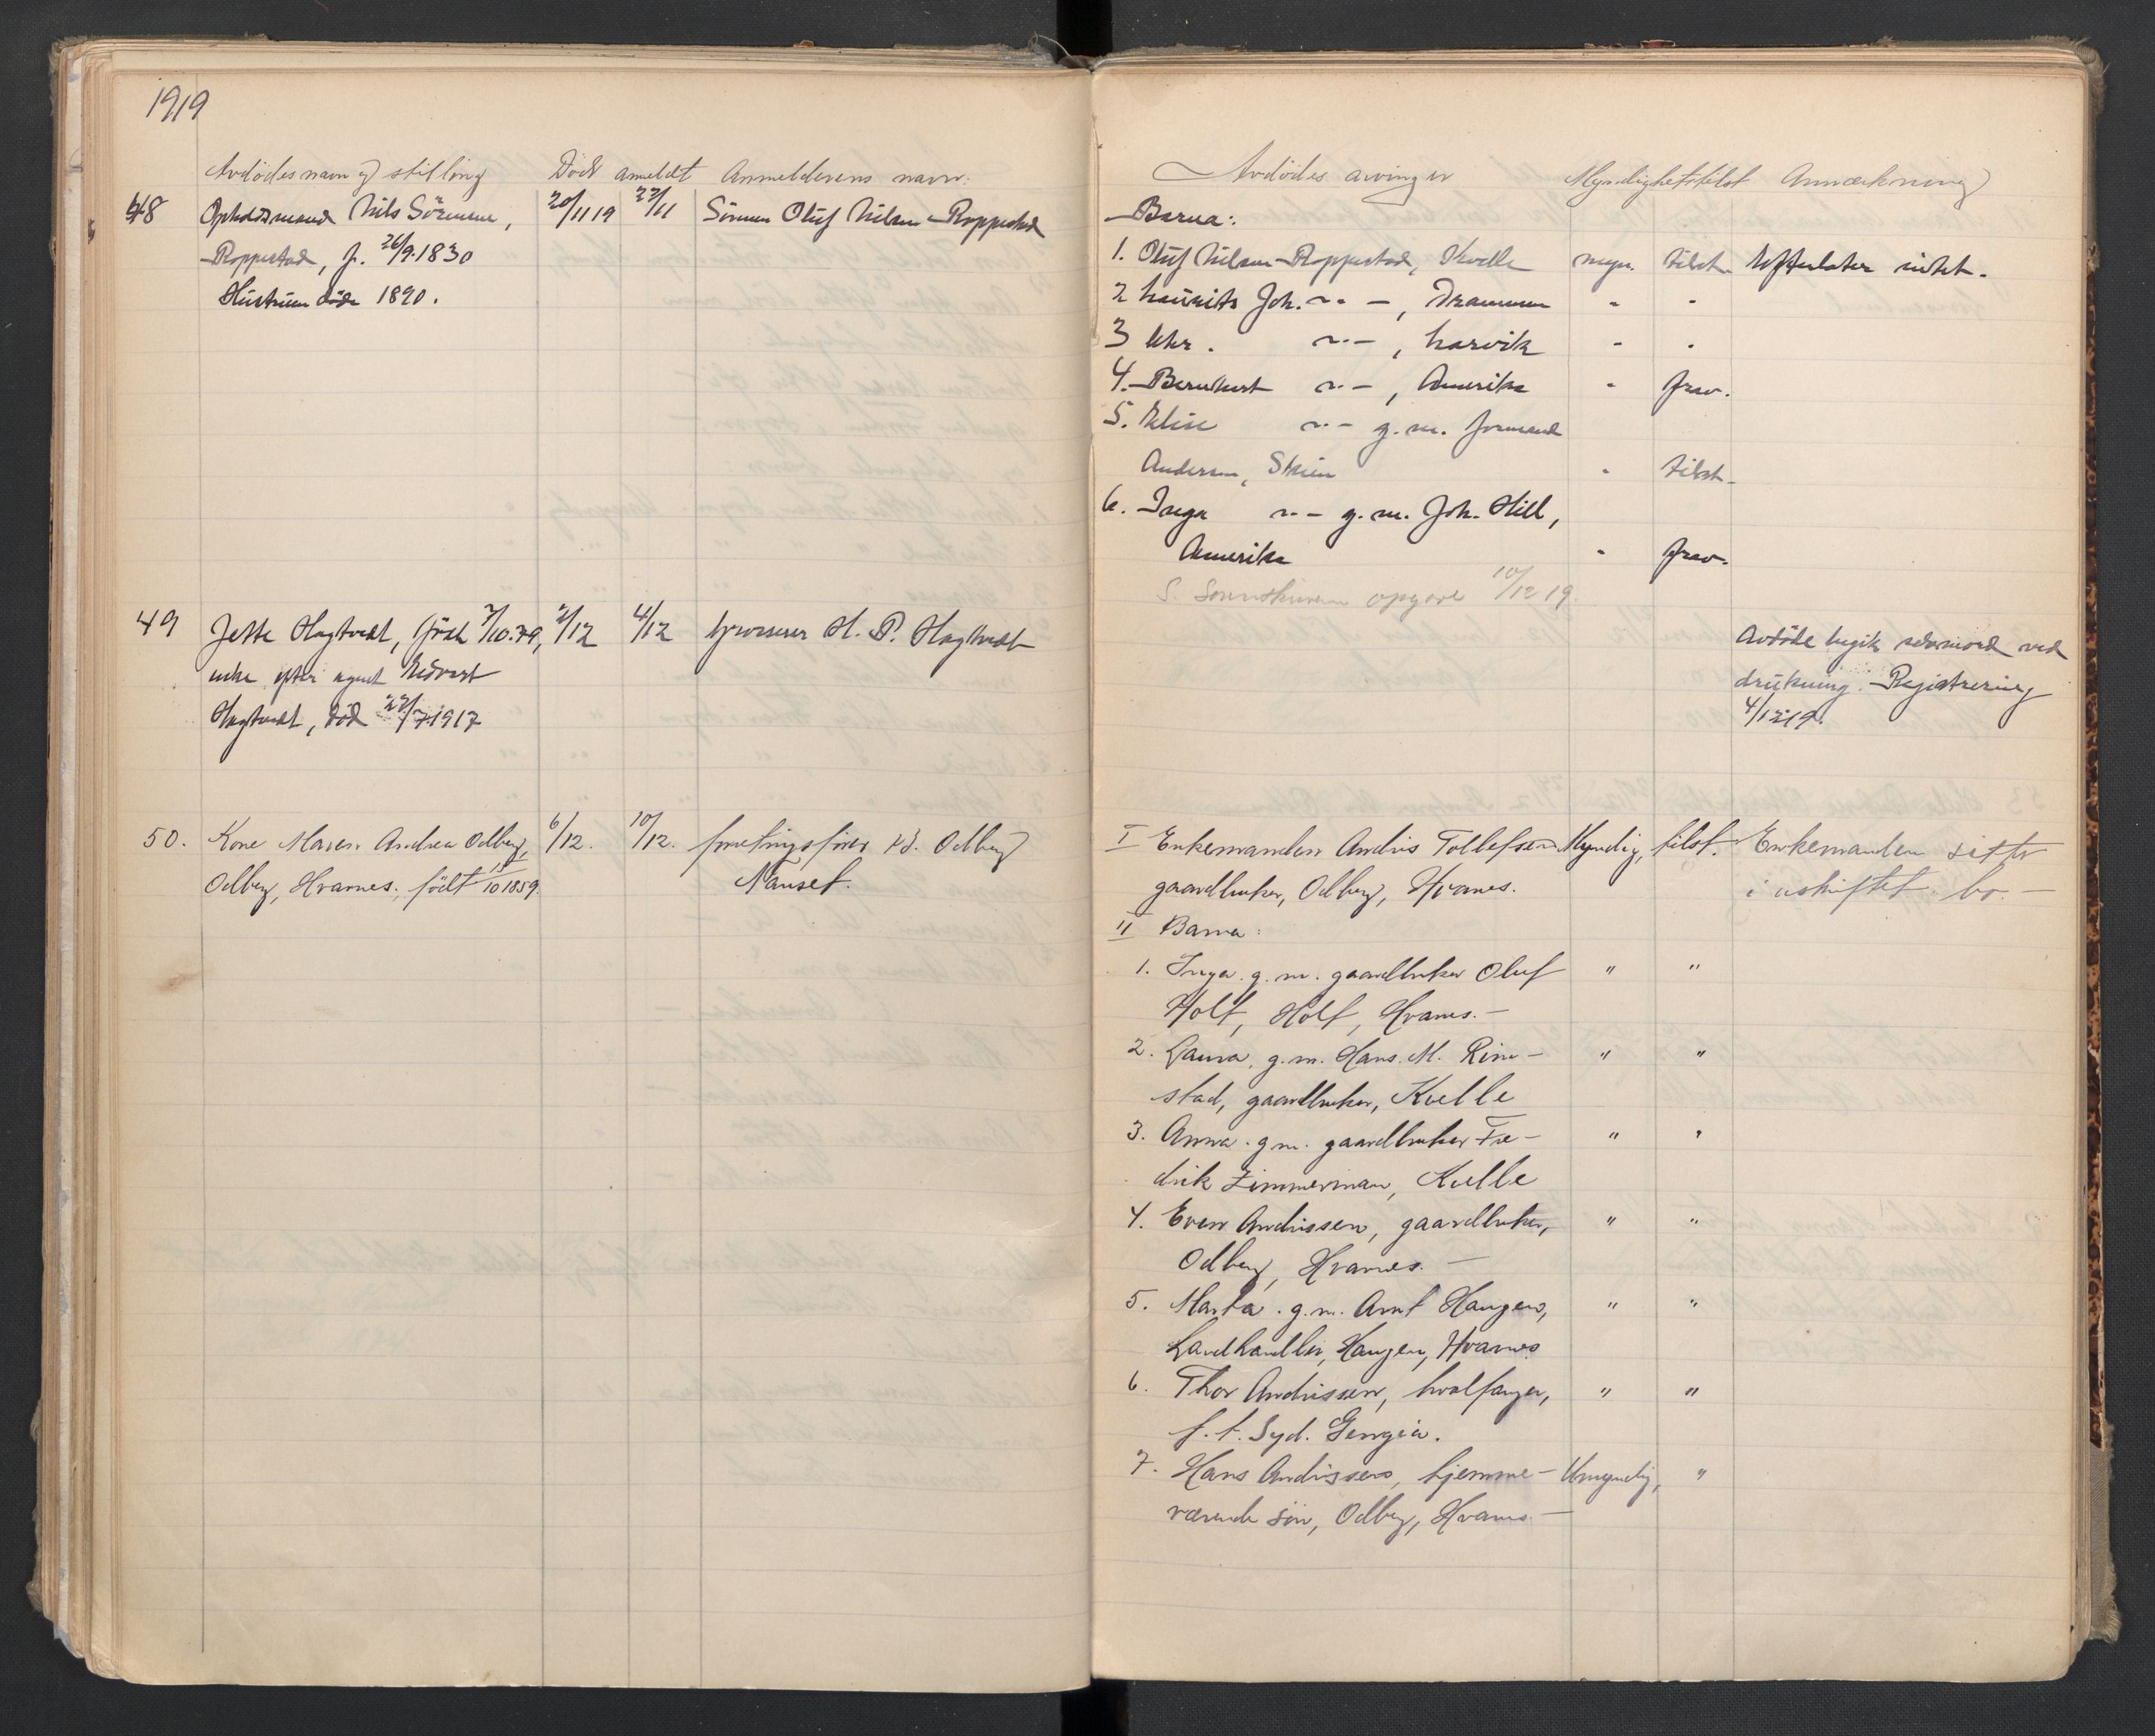 1919
Avdødes navn og stilling Død anmeldt Anmelderens navn.
48 Opholdsmand Nils Sörensen, 20/11 19 27/11 Sönnen Oluf Nilsen Roppestad
Roppestad, f. 26/9.1830
Hustruen döde 1890.
49 Jette Hagtvedt, född 7/10.39, 2/12 4/12 H. P. Hagtvedt
enke efter agent Edvart
Hagtvedt, död 27/7 1917
50. Kone Maren Andrea Odberg, 6/12. 10/12. forretningsfører Odberg
Odberg, Hvarnes, født 15/10 1859. Nanset.
Avdødes arvinger Myndighet tilst. Anmerkning
Barna:
1. Oluf Nilsen Roppestad, Kvelle myn. tilst. Efterlater intet.
2 Laurits Joh. " -, Drammen " "
3 Chr. " -, Larvik " "
4. Bernhart " -, Amerika " frav.
5. Elise " - g.m. formand
Andersen, Skien " tilst.
6. Inga " - g.m. Joh. Hill,
Amerika " frav.
S. Sorenskriveren opgave 10/12 19.
Avdøde begik selvmord ved
drukning. Registrering
4/12 19.
I Enkemanden Andreas Tollefsen Myndig, tilst. Enkemanden sitter
gaardbruker, Odberg, Hvarnes. i uskiftet bo. -
II Barna:
1. Inga. g.m. gaardbruker Oluf " "
Holt, Holt, Hvarnes. -
2. Laura, g.m. Hans. M. Rim- " "
stad, gaardbruker, Kvelle
3. Anna. g.m. gaardbruker Fre- " "
drik Zimmerman, Kvelle
4. Even Andreassen, gaardbruker, " "
Odberg, Hvarnes. -
5. Marta. g.m. Arnt Haugen, " "
Landhandler, Haugen, Hvarnes
6. Thor Andreassen, hvalfanger, " "
f.t. Syd. Georgia.
7. Hans Andreassen, hjemme- Umyndig, "
værende søn, Odberg, Hvarnes -